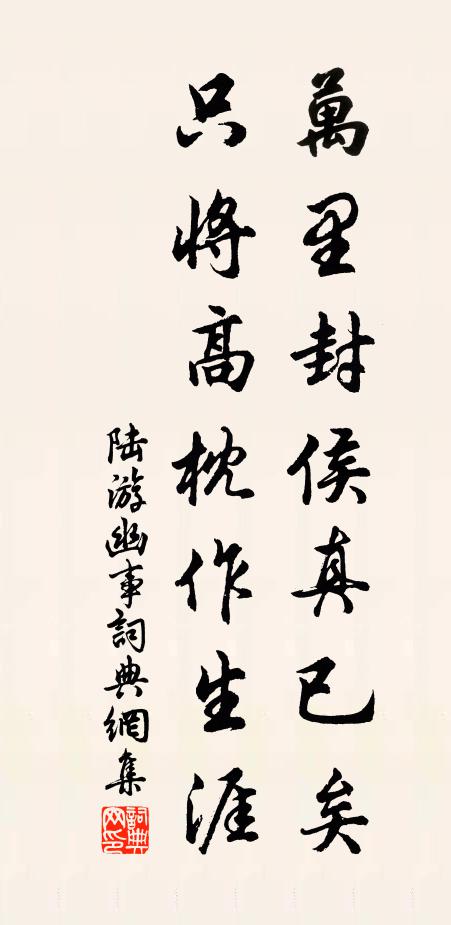 萬里封侯真已矣
只將高枕作生涯
陸游幽事詞典網集
詞典网印